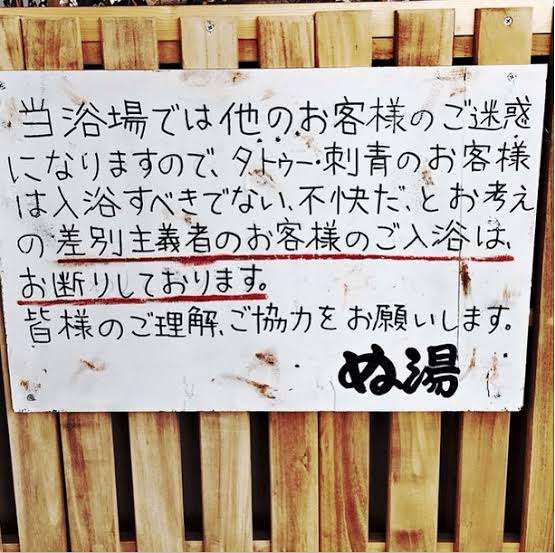 当浴場では他のお客様のご迷惑
になりますので、タトゥー・刺青のお客様
は入浴すべきでない、不快だ、とお考え
の差別主義者のお客様のご入浴は、
お断りしております。
皆様のご理解、ご協力をお願いします。
ぬ湯